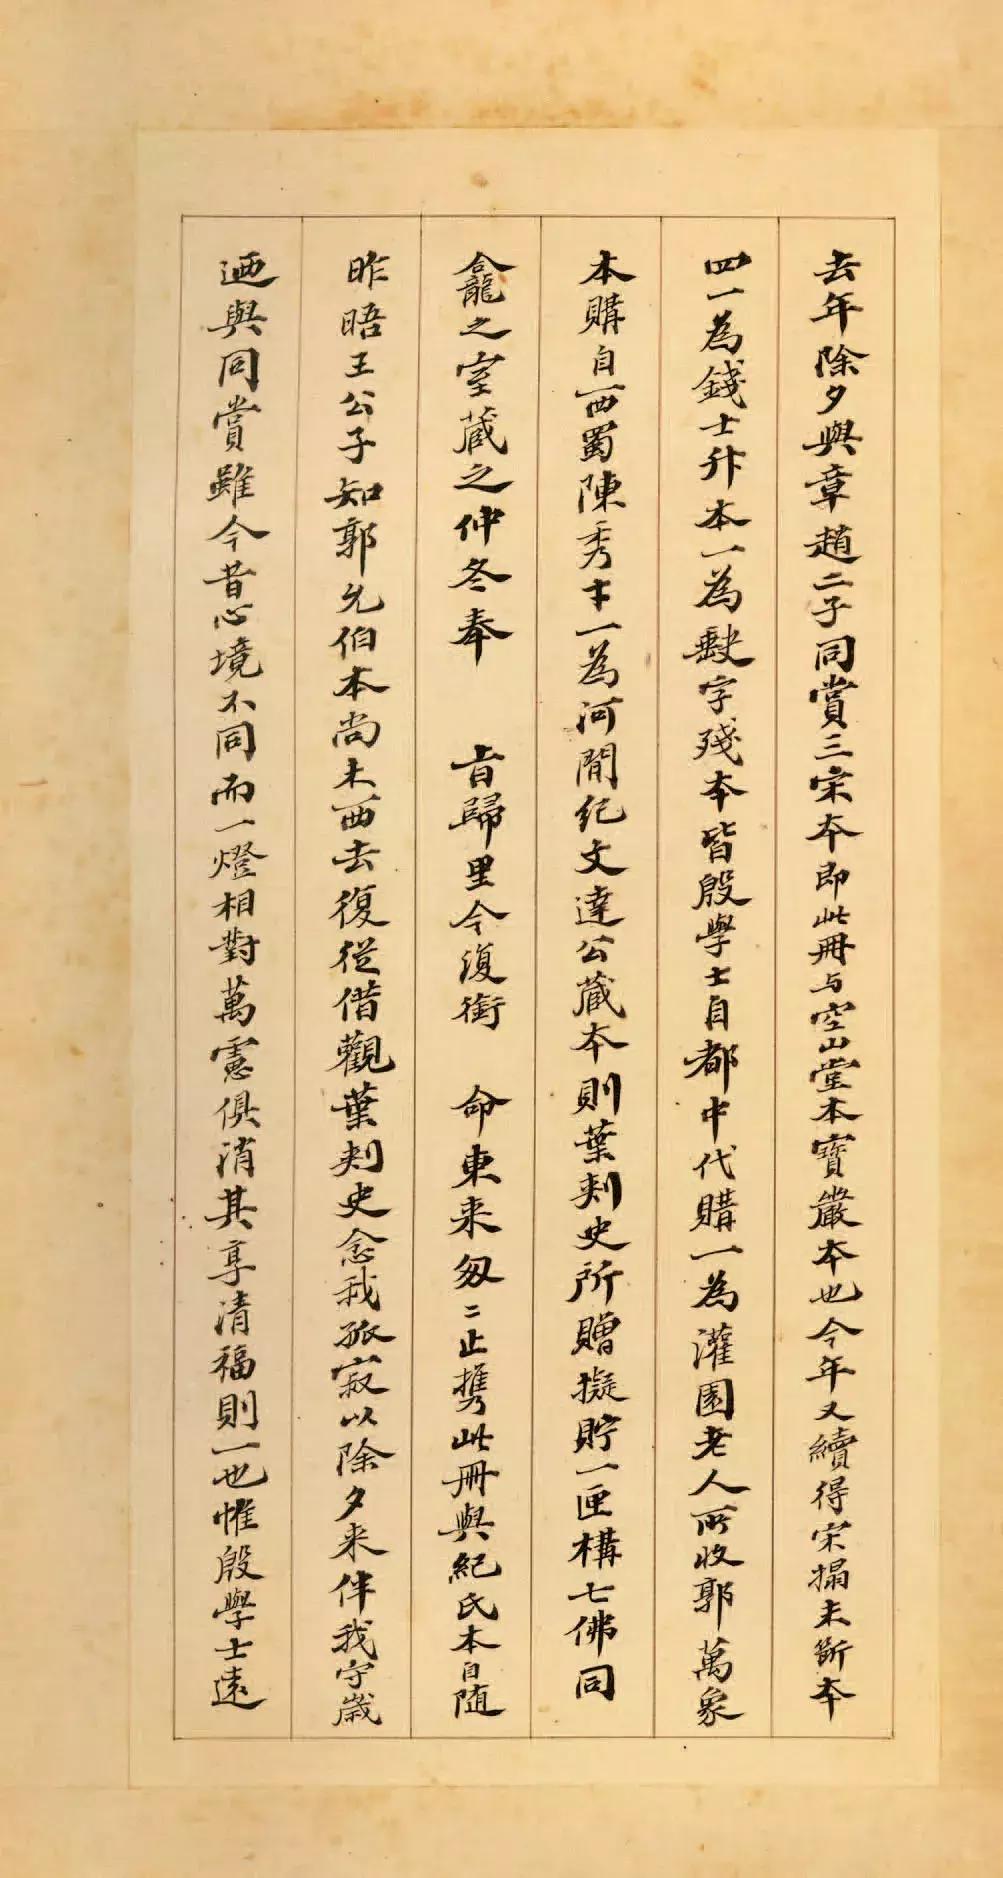 去年除夕與章趙二子同賞三宋本即此冊与空山堂本寶嚴本也今年又續得宋搨未斷本
四一為錢士升本一為觖字殘本皆殷學士自都中代購一為灌園老人所收郭萬象
本購自西蜀陳秀才一為河閒紀文達公藏本則葉刺史所贈擬貯一匣構七佛同
龕之室藏之仲冬奉 旨歸里今復銜 命東来匆二止携此冊與紀氏本自随
昨晤王公子知郭允伯本尚未西去復從借觀葉刺史念我孤寂以除夕来伴我守歲
迺與同賞雖今昔心境不同而一燈相對萬慮俱消其享清福則一也惟殷學士遠